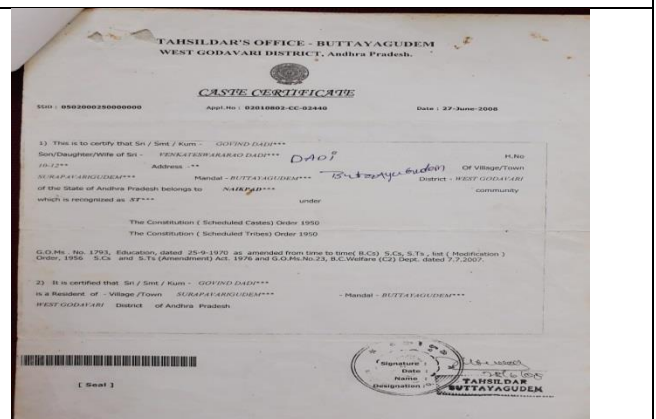 TAHSILDAR'S OFFICE - BUTTAYAGUDEM
WEST GODAVARI DISTRICT, Andhra Pradesh.
CASTE CERTIFICATE
SSID : 0502000250000000 Appl.No : 02010802-CC-02440 Date : 27-June-2008
1) This is to certify that Sri / Smt / Kum - GOVIND DADI***
Son/Daughter/Wife of Sri - VENKATESWARARAO DADI*** DADI H.No
10-12** Address -** Buttayagudem Of Village/Town
SURAPAVARIGUDEM*** Mandal - BUTTAYAGUDEM*** District - WEST GODAVARI
of the State of Andhra Pradesh belongs to NAIKPAD*** community
which is recognized as ST*** under
The Constitution ( Scheduled Castes) Order 1950
The Constitution ( Scheduled Tribes) Order 1950
G.O.Ms . No. 1793, Education, dated 25-9-1970 as amended from time to time( B.Cs) S.Cs, S.Ts , list ( Modification )
Order, 1956 S.Cs and S.Ts (Amendment) Act. 1976 and G.O.Ms.No.23, B.C.Welfare (C2) Dept. dated 7.7.2007.
2) It is certified that Sri / Smt / Kum - GOVIND DADI***
is a Resident of - Village /Town SURAPAVARIGUDEM*** - Mandal - BUTTAYAGUDEM***
WEST GODAVARI District of Andhra Pradesh
[ Seal ]
Signature :
Date :
Name :
Designation :
TAHSILDAR
BUTTAYAGUDEM